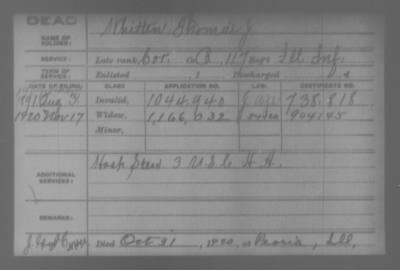 DEAD
NAME OF SOLDIER: Whitten Thomas J
SERVICE: Late rank, Cor. Co D, 11 Ill. Inf.
TERM OF SERVICE: Enlisted , 1 Discharged , 1
DATE OF FILING. CLASS. APPLICATION NO. LAW. CERTIFICATE NO.
1891 Aug 3 Invalid, 1044940 738,818
1920 Nov 17 Widow, 1,166,032
Minor,
ADDITIONAL SERVICES: Hosp Stew. 3 U.S.C. H.A.
REMARKS:
Died Oct 21, 1920, at Peoria, Ill.